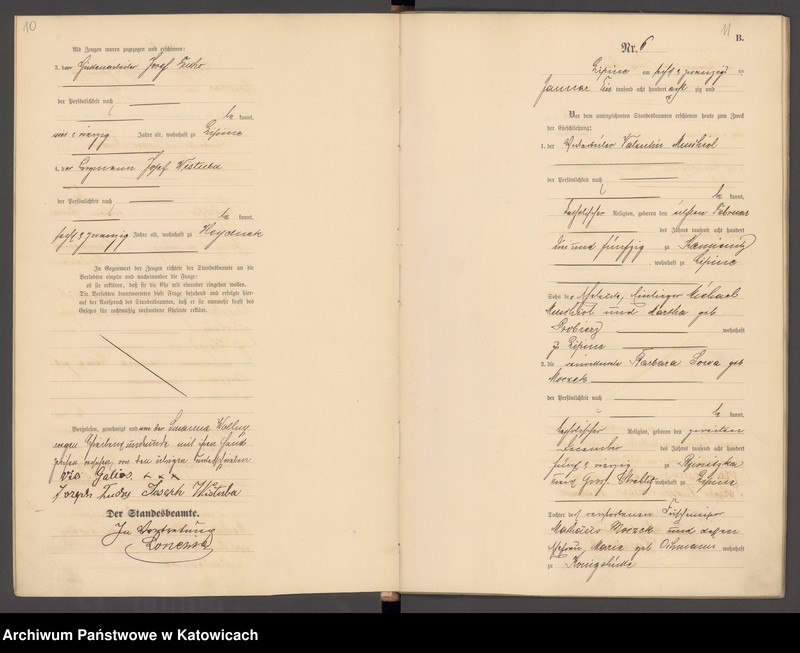 10
Als Zeugen waren zugezogen und erschienen:
3. der Hüttenarbeiter Josef
der Persönlichkeit nach
be kannt,
Jahre alt, wohnhaft zu Lipine
4. der Bergmann Josef Wistuba
der Persönlichkeit nach
be kannt,
sechs & zwanzig Jahre alt, wohnhaft zu Heyduck
In Gegenwart der Zeugen richtete der Standesbeamte an die
Verlobten einzeln und nacheinander die Frage:
ob sie erklären, daß sie die Ehe mit einander eingehen wollen.
Die Verlobten beantworteten diese Frage bejahend und erfolgte hier-
auf der Ausspruch des Standesbeamten, daß er sie nunmehr kraft des
Gesetzes für rechtmäßig verbundene Eheleute erkläre.
Vorgelesen, genehmigt und von der Susanna
wegen Schreibensunkunde mit ihren Hand-
zeichen versehen, von den übrigen unterschrieben
+ + +
Joseph Joseph Wistuba
Der Standesbeamte.
In Vertretung
11
B.
Nr. 6
Lipine am sechs & zwanzigs ten
Januar tausend acht hundert acht zig und
Vor dem unterzeichneten Standesbeamten erschienen heute zum Zweck
der Eheschließung:
1. der Valentin Muschiol
der Persönlichkeit nach
be kannt,
katholischer Religion, geboren den elften Februar
des Jahres tausend acht hundert
drei und fünfzig zu Kamienitz
, wohnhaft zu Lipine
Sohn des Einlieger Michael
Muschiol und Martha geb
wohnhaft
zu Lipine
2. die verwittwete Barbara Sowa geb
Morzek
der Persönlichkeit nach
be kannt,
katholischer Religion, geboren den zweiten
December des Jahres tausend acht hundert
fünf & vierzig zu
Kreis Groß Strehlitz wohnhaft zu Lipine
Tochter des verstorbenen
Mathäus Morzek und dessen
Ehefrau, Marie geb Ochmann wohnhaft
zu Königshütte
Archiwum Państwowe w Katowicach